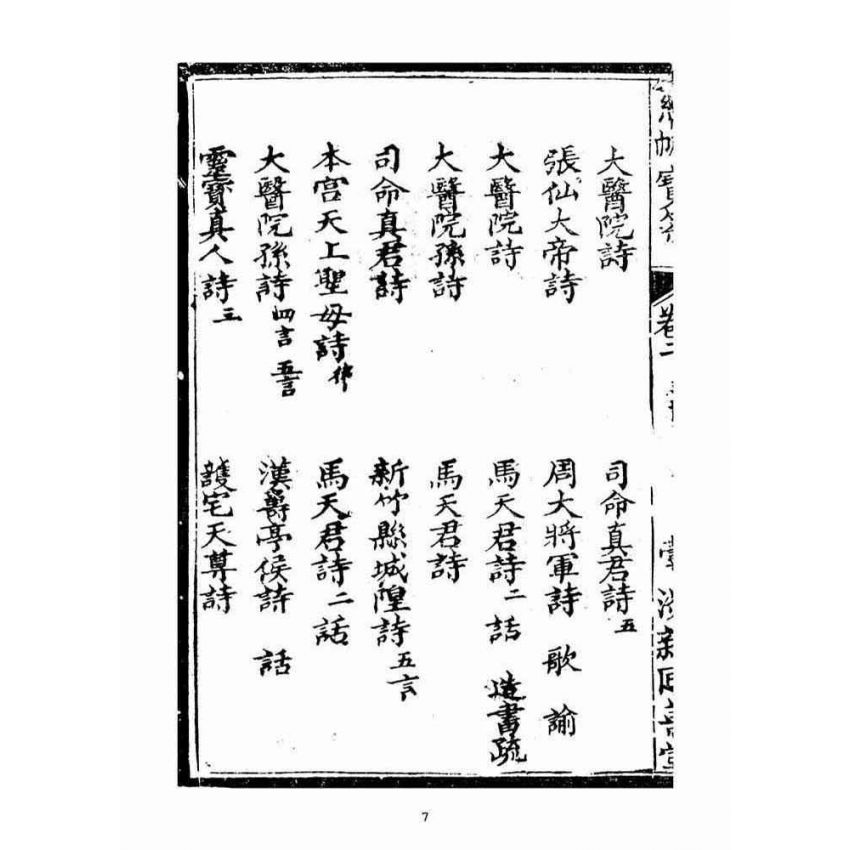 卷二
大醫院詩 司命真君詩 五
張仙大帝詩 周大將軍詩 歌 諭
大醫院詩 馬天君詩 二 話 造書疏
大醫院孫詩 馬天君詩
司命真君詩 新竹縣城隍詩 五言
本宮天上聖母詩 律 馬天君詩 二 話
大醫院孫詩 四言 五言 漢爵亭侯詩 話
靈寶真人詩 三 護宅天尊詩
7